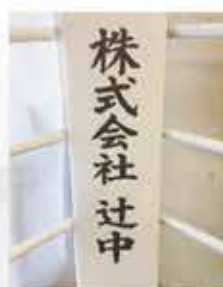 株式会社 辻中